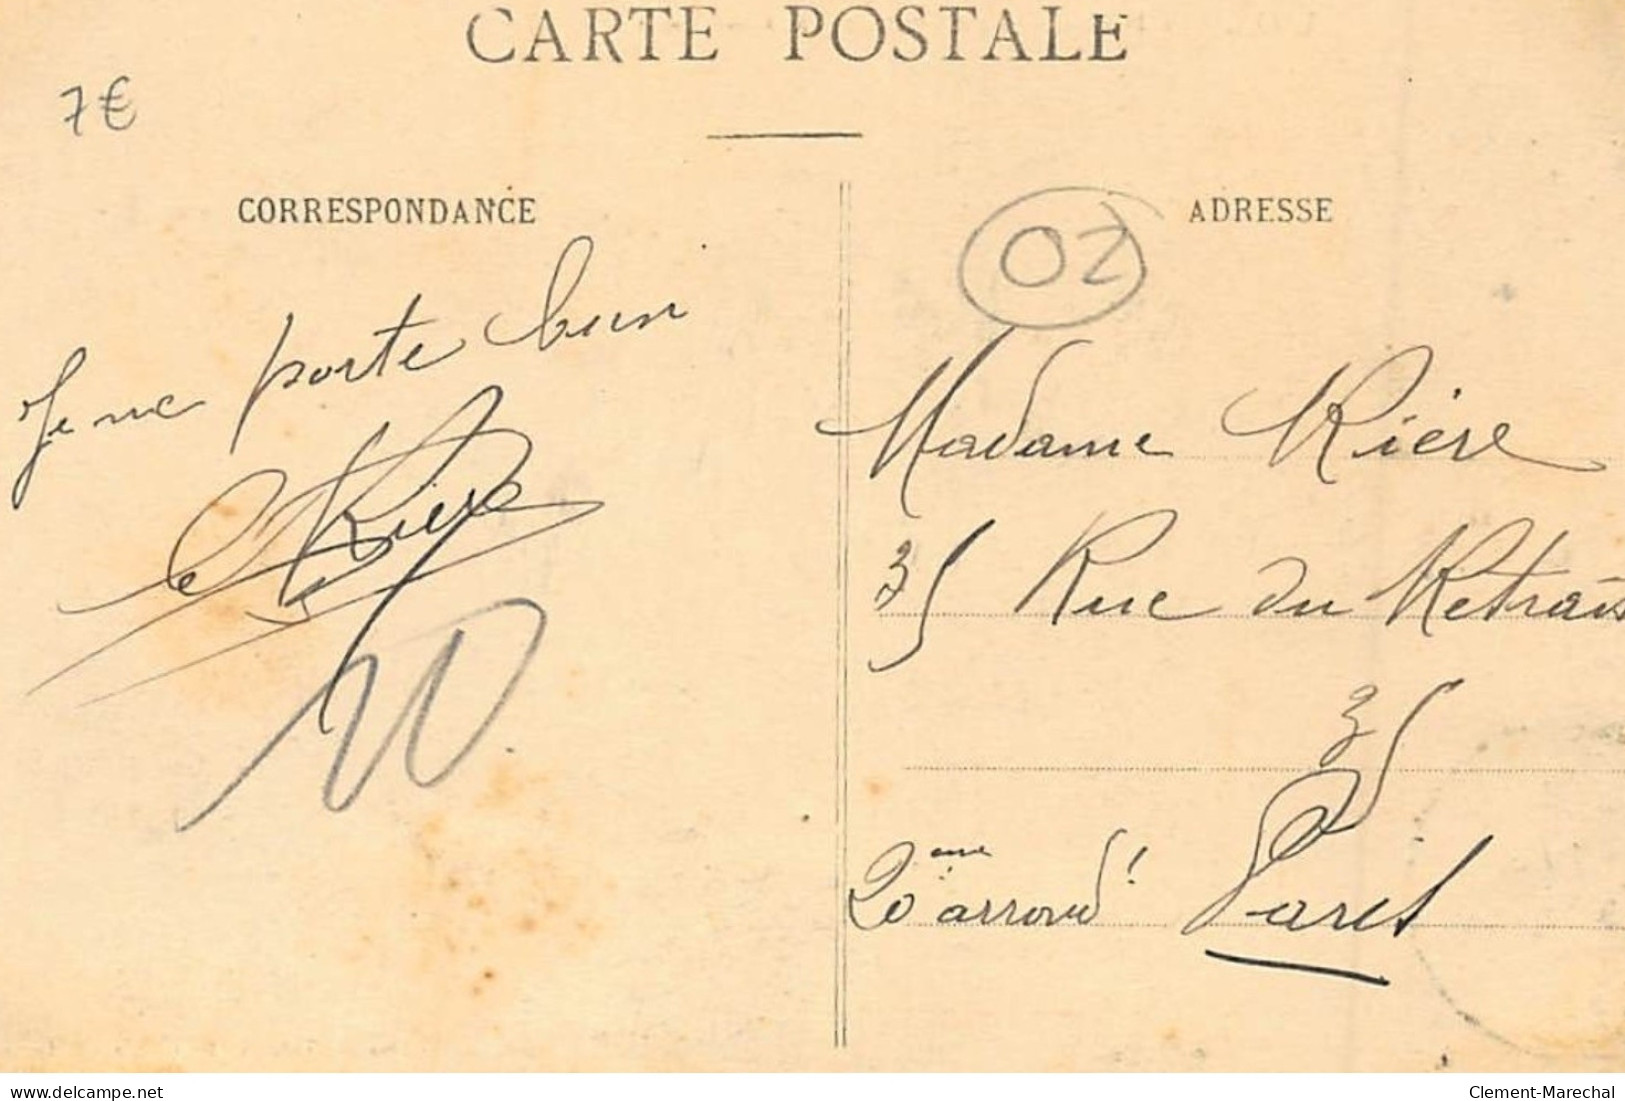 CARTE POSTALE
7€
CORRESPONDANCE
Je me porte bien
Rière
10
ADRESSE
02
Madame Rière
35 Rue du Retrait
35
20 eme arrond! Paris
www.delcampe.net
Clement-Marechal